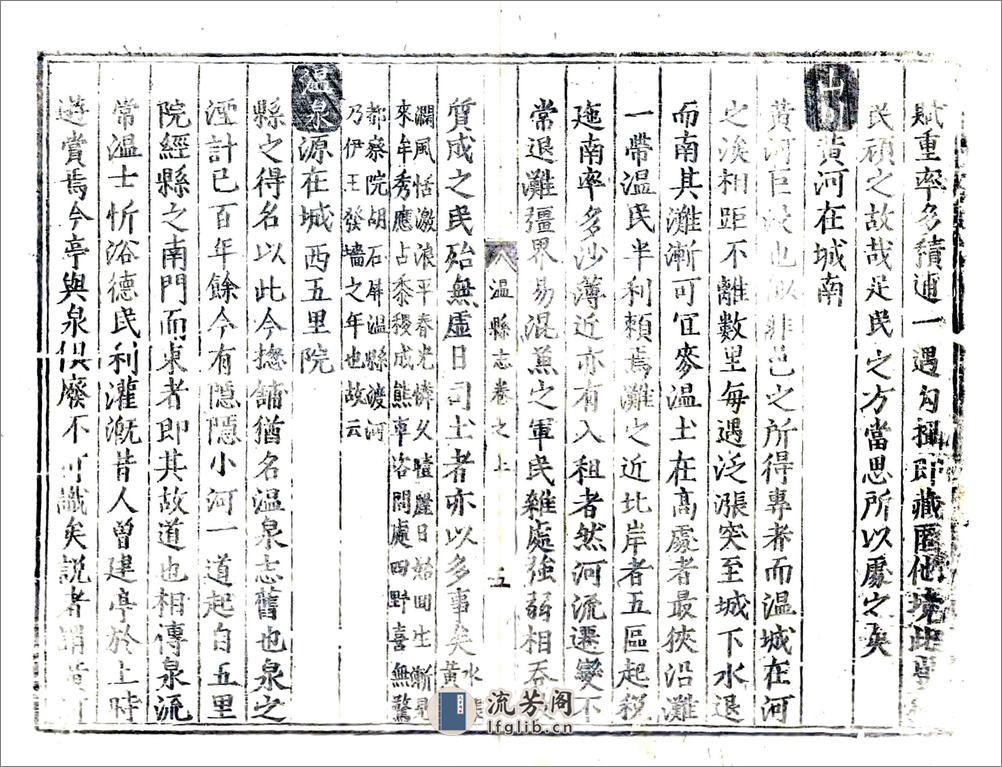 賦重率多積逋一遇勾攝即藏匿他境此
民頑之故哉足民之方當思所以處之矣
山川黃河在城南
黃河巨浸也以非邑之所得專者而温城在河
之涘相距不離數里每遇泛漲突至城下水退
而南其灘漸可宜麥温土在高處者最狹沿灘
一帶温民半利賴焉灘之近北岸者五區起税
迤南率多沙薄近亦有入租者然河流遷變不
常退灘疆界易混蒹之軍民雜處強弱相吞
質成之民殆無虛日司土者亦以多事矣黃水
瀾風恬激浪平春光憐久曀麗日始回生漸
來牟秀應占黍稷成熊車咨問處四野喜無驚
都察院胡石屏温縣渡河
乃伊王發墻之年也故云
温泉源在城西五里院
縣之得名以此今撫舖猶名温泉志舊也泉之
湮計已百年餘今有隱隱小河一道起自五里
院經縣之南門而東者即其故道也相傳泉流
常温士忻浴德民利灌溉昔人曾建亭於上時
遊賞焉今亭與泉俱廢不可識矣説者謂黃河
温縣志卷之上
五
流芳阁
lfglib.cn